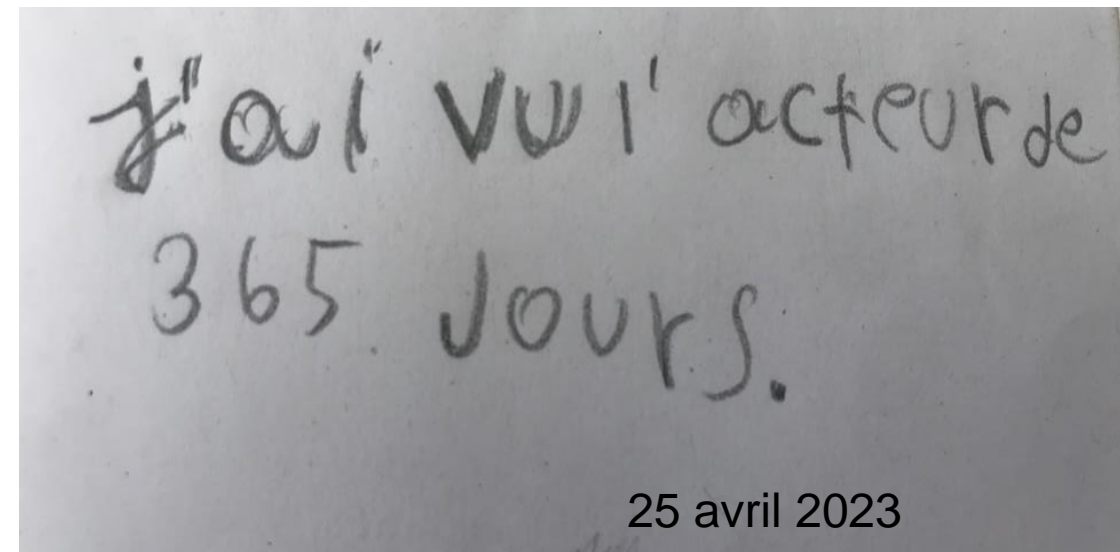 j'ai vu l'acteur de
365 Jours.
25 avril 2023